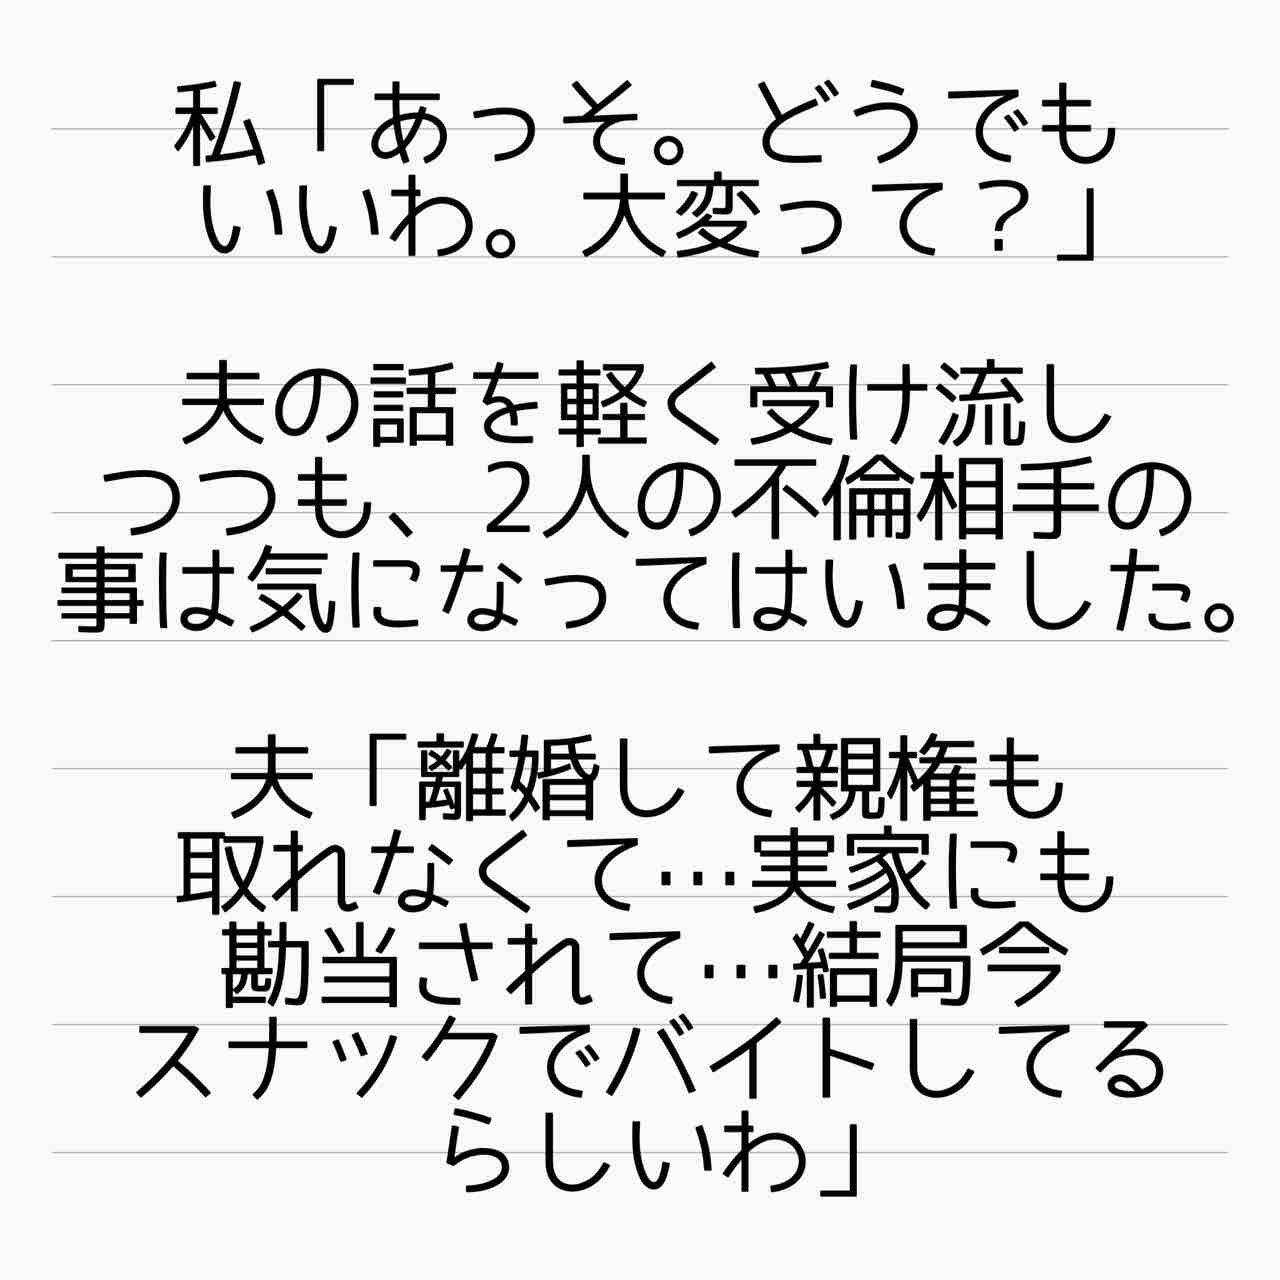 私「あっそ。どうでも
いいわ。大変って？」
夫の話を軽く受け流し
つつも、2人の不倫相手の
事は気になってはいました。
夫「離婚して親権も
取れなくて…実家にも
勘当されて…結局今
スナックでバイトしてる
らしいわ」